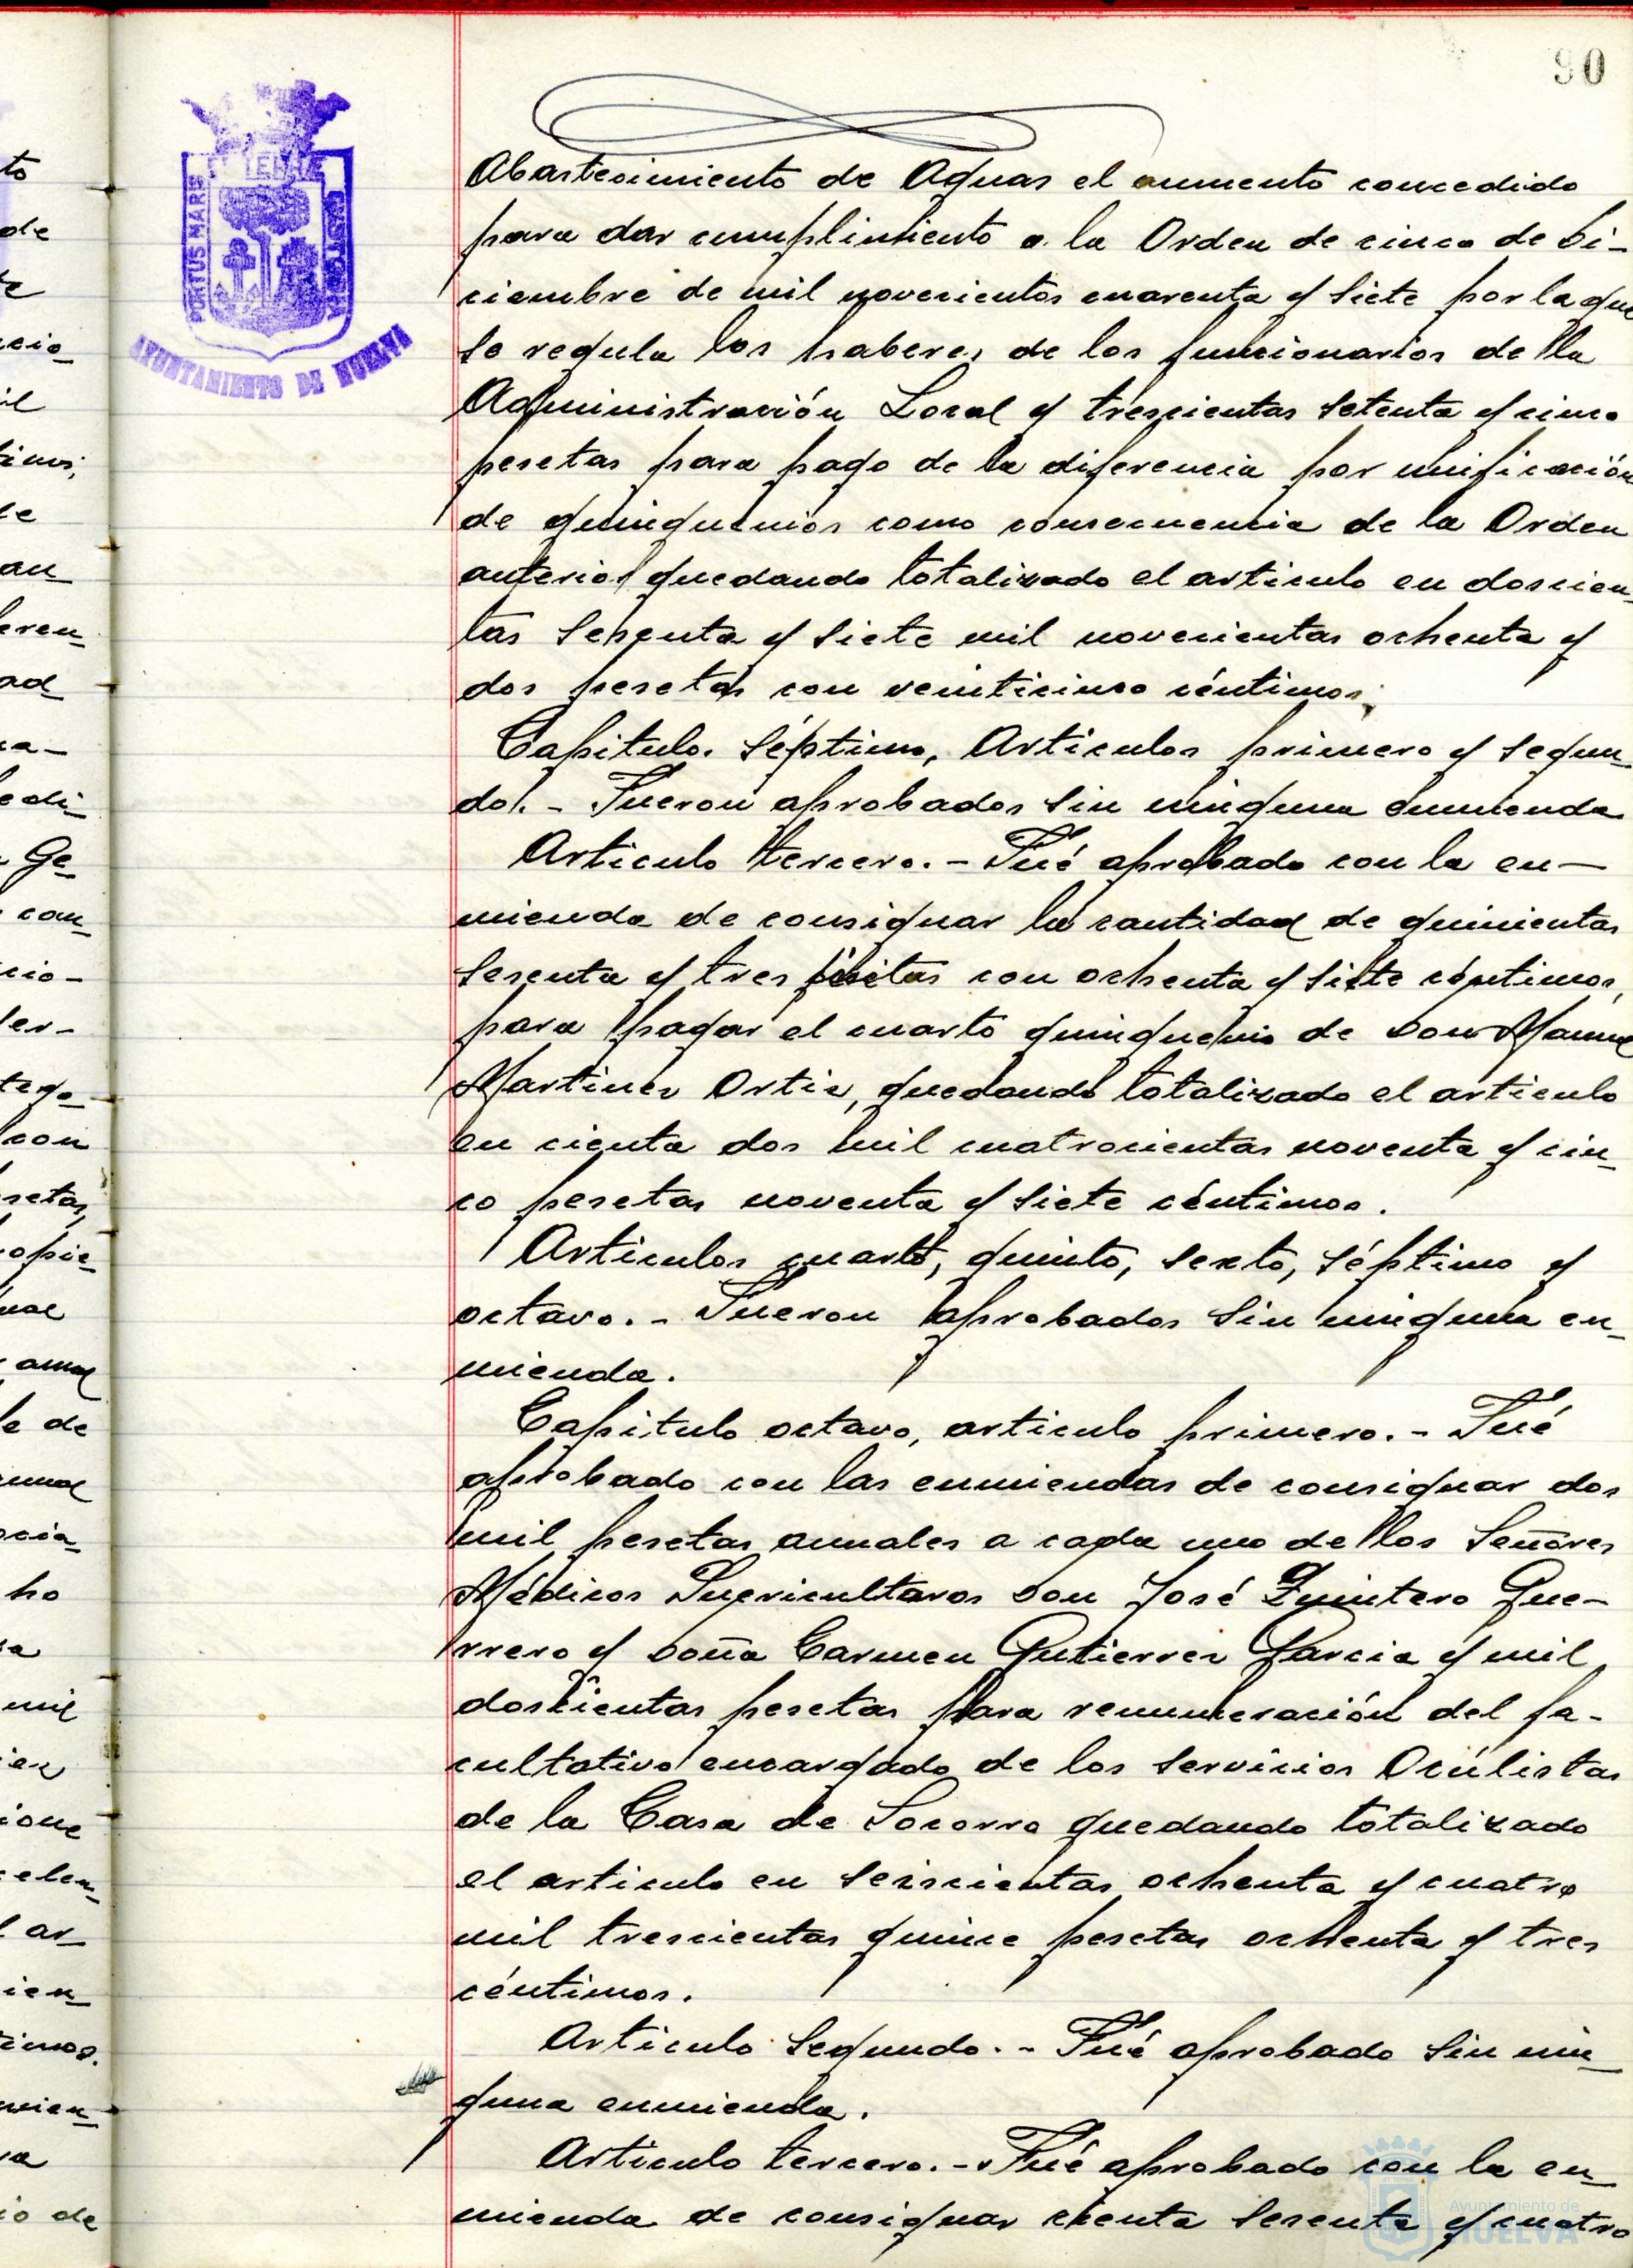 90
PORTUS MARIS
AYUNTAMIENTO DE HUELVA
Abastecimiento de Aguas el aumento concedido
para dar cumplimiento a la Orden de cinco de Di-
ciembre de mil novecientos cuarenta y siete por la que
se regula los haberes de los funcionarios de la
Administración Local y trescientas setenta y cinco
pesetas para pago de la diferencia por unificación
de quinquenios como consecuencia de la Orden
anterior quedando totalizado el articulo en doscien-
tas sesenta y siete mil novecientas ochenta y
dos pesetas con veinticinco céntimos.
Capitulo Séptimo, Articulos primero y segun-
do.- Fueron aprobados sin ninguna enmienda
Articulo tercero.- Fué aprobado con la en-
mienda de consignar la cantidad de quinientas
sesenta y tres pesetas con ochenta y siete céntimos,
para pagar el cuarto quinquenio de Don Manuel
Martinez Ortiz, quedando totalizado el articulo
en cienta dos mil cuatrocientas noventa y cin-
co pesetas noventa y siete céntimos.
Articulos cuarto, quinto, sexto, séptimo y
octavo.- Fueron aprobados sin ninguna en-
mienda.
Capitulo octavo, articulo primero.- Fué
aprobado con las enmiendas de consignar dos
mil pesetas anuales a cada uno de los Señores
Médicos Puericultores Don José Quintero Gue-
rrero y Doña Carmen Gutierrez Garcia y mil
doscientas pesetas para remuneración del fa-
cultativo encargado de los servicios Oculistas
de la Casa de Socorro quedando totalizado
el articulo en seiscientas ochenta y cuatro
mil trescientas quince pesetas ochenta y tres
céntimos.
Articulo segundo.- Fué aprobado sin nin-
guna enmienda.
Articulo tercero.- Fué aprobado con la en-
mienda de consignar cienta sesenta y cuatro
Ayuntamiento de
HUELVA